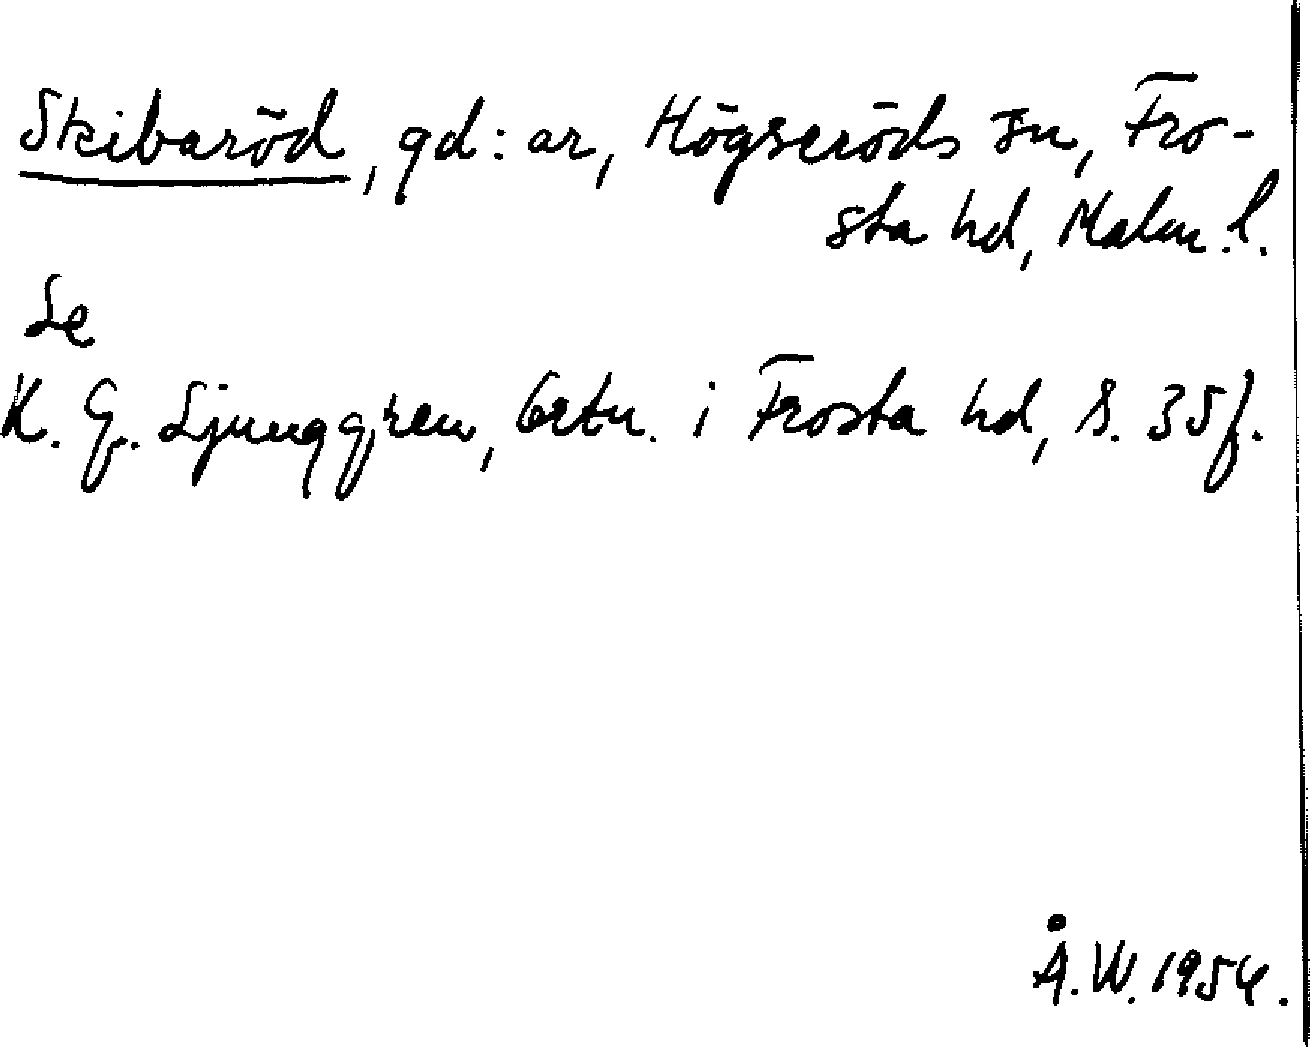 Skibaröd, gd:ar, Högseröds sn, Fro-
sta hd, Malm.l.
Se
K. G. Ljunggren, Ortn. i Frosta hd, S. 35f.
Å.W. 1954.